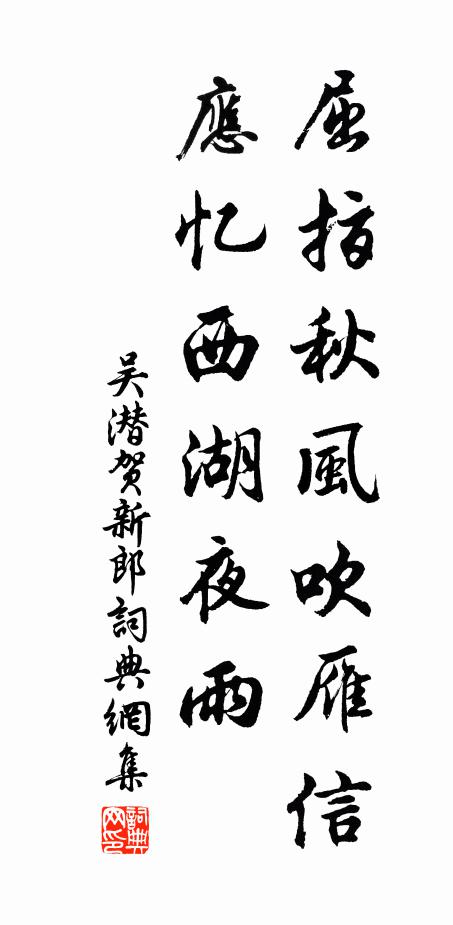 屈指秋風吹雁信
應忆西湖夜雨
吴潜贺新郎詞典網集
詞典网印